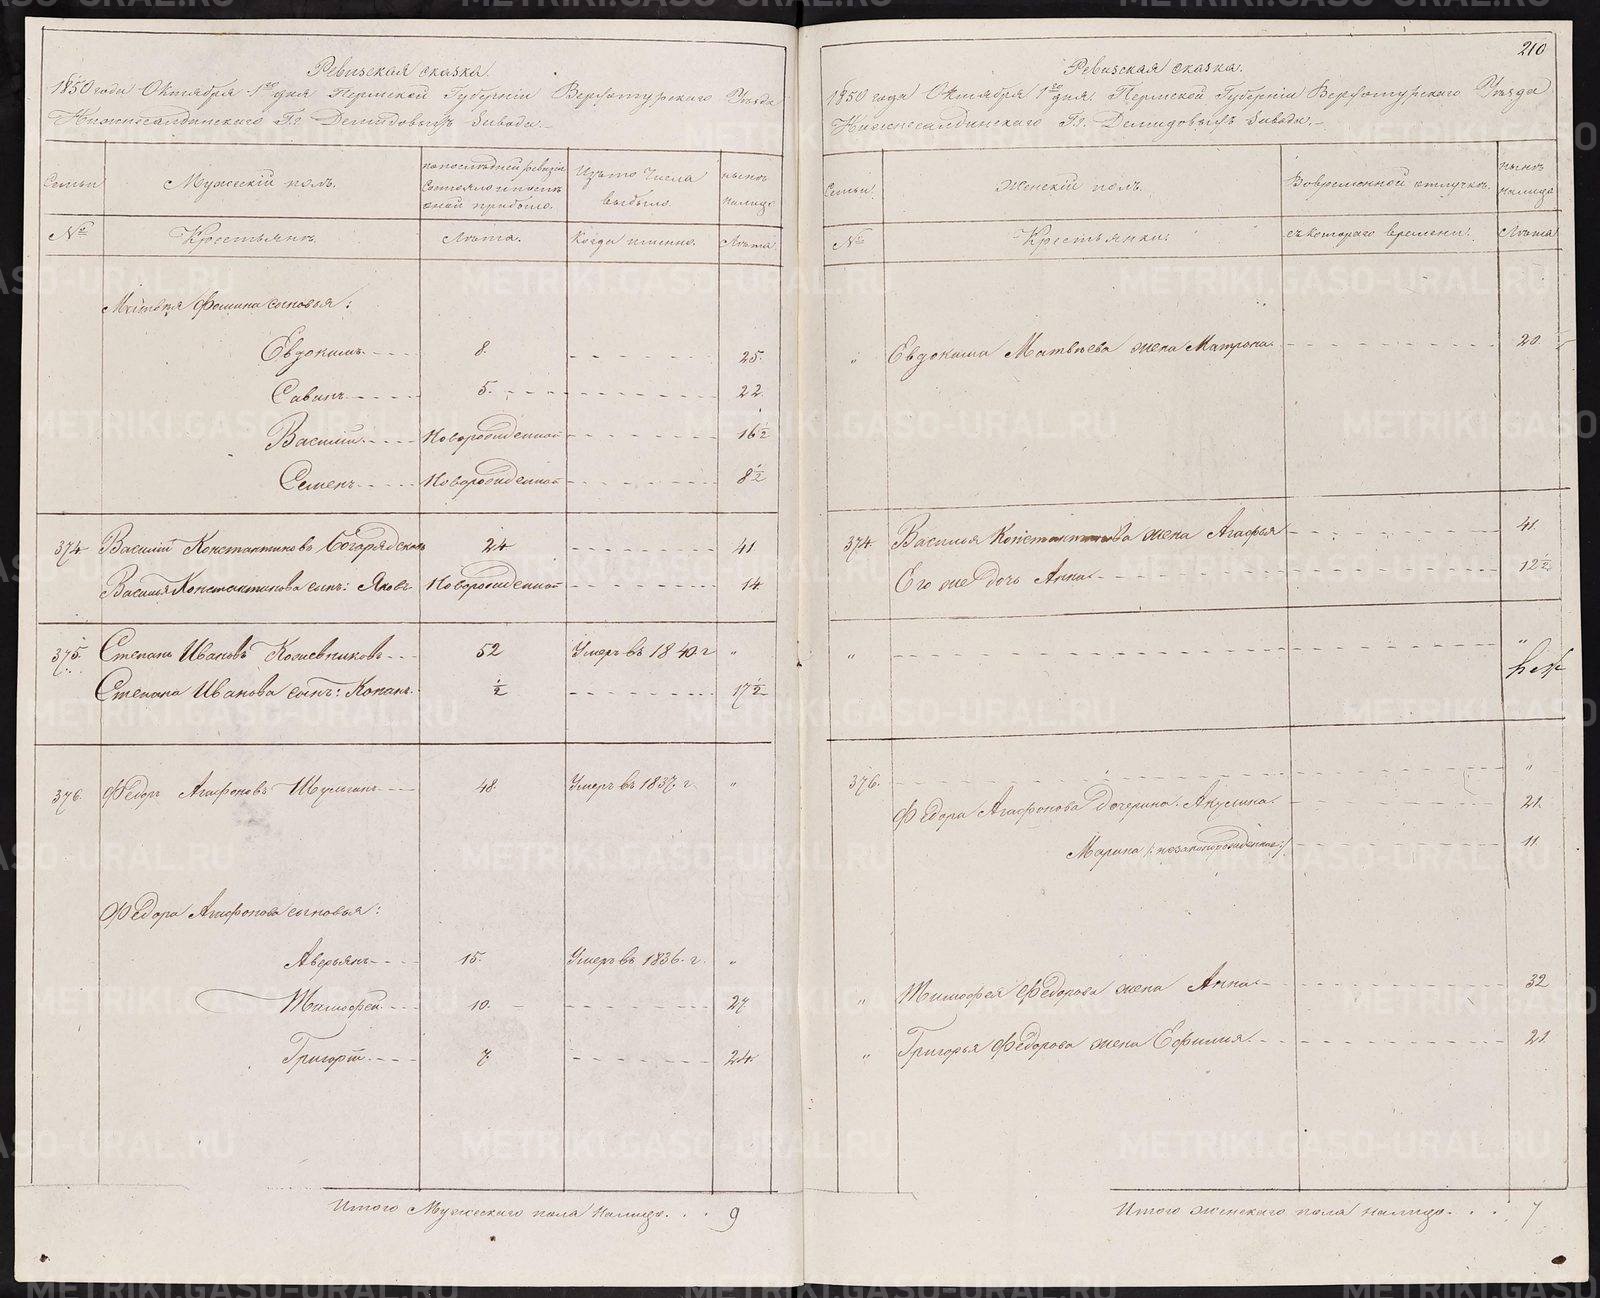 Ревизская сказка.
1850 года Октября 1го дня Пермской Губернiи Верхотурскаго Уѣзда
Нижнесалдинскаго Гг. Демидовыхъ Завода.
Семьи
Мужескiй полъ.
По последней ревизiи состояло и после оной прибыло.
Изъ того числа выбыло.
нынѣ налицо.
№
Крестьянъ.
Лѣта.
Когда именно.
Лѣта
Матвѣя Фомина сыновья:
Евдокимъ 8. 25.
Савинъ 5. 22
Василiй Новорожденной 16 1/2
Семенъ Новорожденной 8 1/2
374 Василiй Константиновъ 24 41
Василья Константинова сынъ: Яковъ Новорожденной 14.
375. Степанъ Ивановъ Кожевниковъ 52 Умеръ въ 1840 г. "
Степана Иванова сынъ: Конанъ 1/2 17 1/2
376. Федоръ Агафоновъ Шулыгинъ 48. Умеръ въ 1837. г. "
Федора Агафонова сыновья:
Аверьянъ 15. Умеръ въ 1836. г. "
Тимофей 10. 27
Григорiй 7. 24.
Итого Мужескаго пола налицо. 9
210
Ревизская сказка.
1850 года Октября 1го дня Пермской Губернiи Верхотурскаго Уѣзда
Нижнесалдинскаго Гг. Демидовыхъ Завода.
Семьи.
Женскiй полъ.
Во временной отлучкѣ.
нынѣ налицо
№
Крестьянки.
съ котораго времени.
Лѣта
" Евдокима Матвѣева жена Матрона 20.
374. Василья Константинова жена Агафья 41.
Его же дочь Анна 12 1/2
" "
376. "
Федора Агафонова дочерина. Акулина. 21.
Марина /:незаконорожденная:/ 11.
" Тимофея Федорова жена Анна 32
" Григорья Федорова жена Ефимiя 21
Итого женскаго пола налицо. 7
METRIKI.GASO-URAL.RU